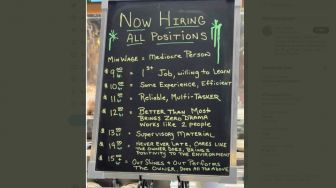 NOW HIRING
ALL POSITIONS
MIN WAGE = MEDIOCRE PERSON
$9.00 hr = 1st JOB, WILLING TO LEARN
$10.00 hr = SOME EXPERIENCE, EFFICIENT
$11.00 hr = RELIABLE, MULTI-TASKER
$12.00 hr = BETTER THAN MOST
BRINGS ZERO DRAMA
WORKS LIKE 2 PEOPLE
$13.00 hr = SUPERVISORY MATERIAL
$14.00 hr = NEVER EVER LATE, CARES LIKE
THE OWNER DOES, BRINGS
POSITIVITY TO THE ENVIRONMENT
$15.00 hr = OUT SHINES & OUT PERFORMS
THE OWNER, DOES ALL THE ABOVE